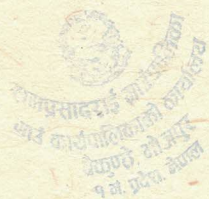 रामप्रसादराई गाउँपालिका
गाउँ कार्यपालिकाको कार्यालय
बैकुण्ठे, भोजपुर
१ नं. प्रदेश, नेपाल